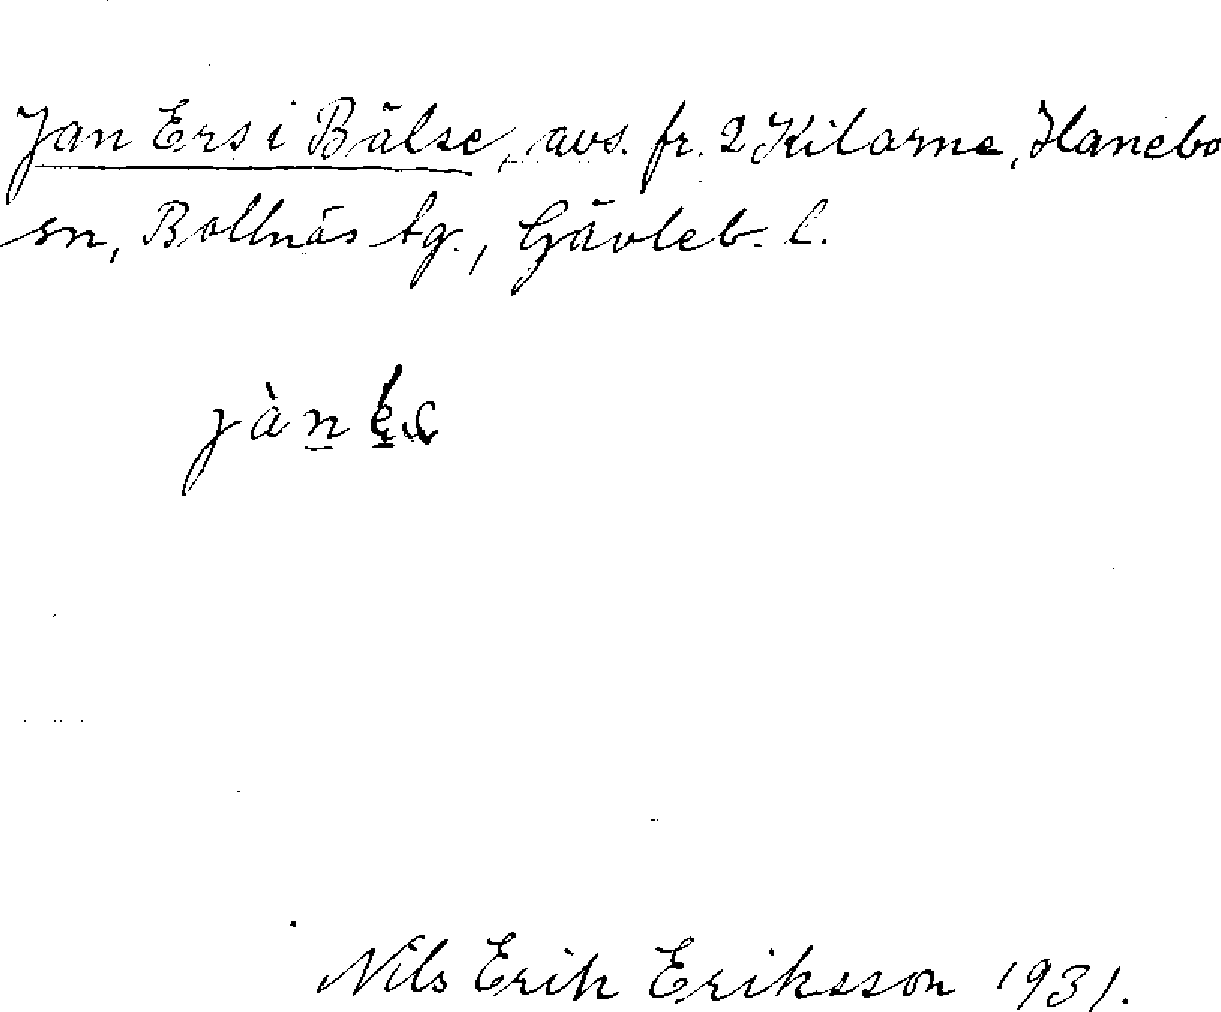 Jan Ers i Bälse, avs. fr. 2 Kilarne, Hanebo
sn, Bollnäs tg., Gävleb. l.
jàn
Nils Erik Eriksson 1931.